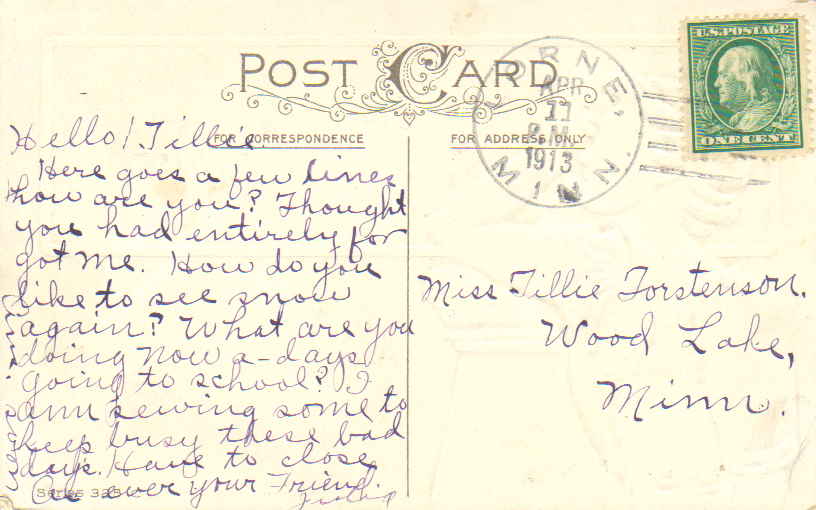 POST CARD
FOR CORRESPONDENCE
FOR ADDRESS ONLY
U.S. POSTAGE
ONE CENT
APR
11
P.M.
1913
MINN.
Hello! Tillie
Here goes a few lines
how are you? Thought
you had entirely for
got me. How do you
like to see snow
again? What are you
doing now a-days
going to school? I
am sewing some to
keep busy these bad
days. Have to close
As ever your Friend.
Series
Miss Tillie Torstenson.
Wood Lake,
Minn.